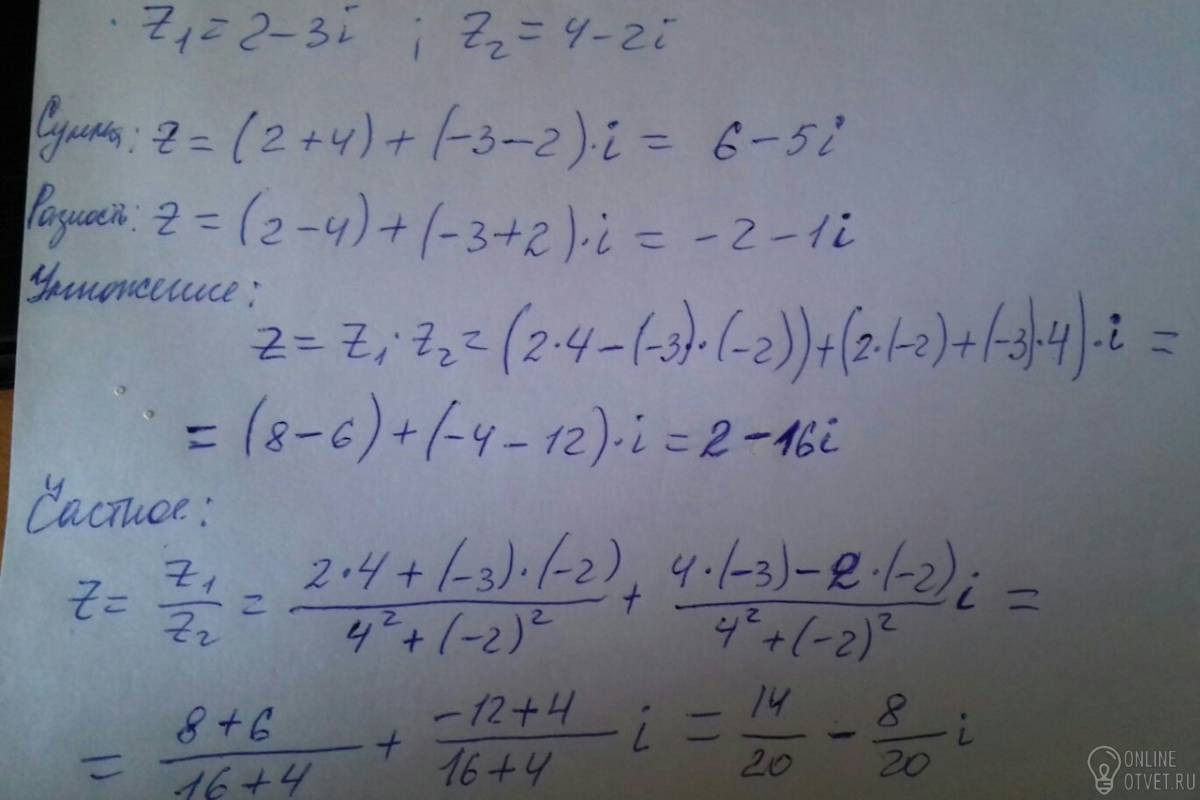 Z₁ = 2 - 3i ; Z₂ = 4 - 2i
Сумма: Z = (2 + 4) + (-3 - 2)·i = 6 - 5i
Разность: Z = (2 - 4) + (-3 + 2)·i = -2 - 1i
Умножение:
Z = Z₁·Z₂ = (2·4 - (-3)·(-2)) + (2·(-2) + (-3)·4)·i =
= (8 - 6) + (-4 - 12)·i = 2 - 16i
Частное:
Z = Z₁/Z₂ = (2·4 + (-3)·(-2))/(4² + (-2)²) + (4·(-3) - 2·(-2))/(4² + (-2)²) i =
= (8 + 6)/(16 + 4) + (-12 + 4)/(16 + 4) i = 14/20 - 8/20 i
ONLINE
OTVET.RU